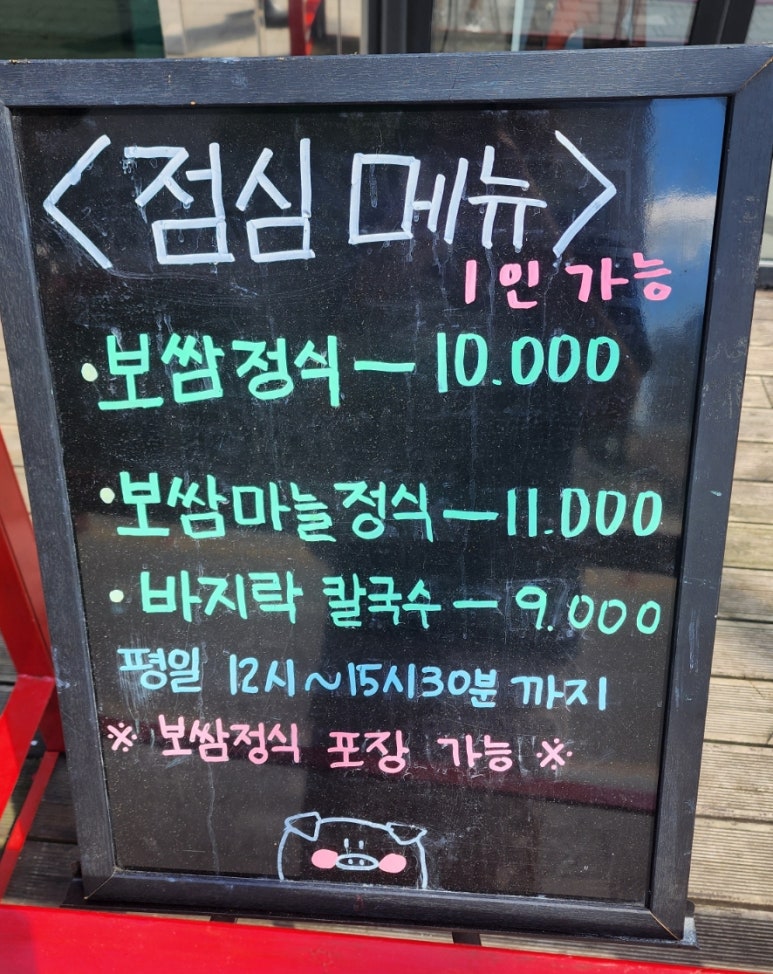 <점심 메뉴>
1인 가능
·보쌈정식 — 10.000
·보쌈마늘정식 — 11.000
·바지락 칼국수 — 9.000
평일 12시~15시30분 까지
※ 보쌈정식 포장 가능 ※